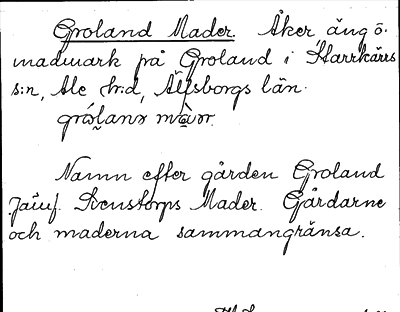 Groland Mader. Åker äng o.
madmark på Groland i Starrkärrs
s:n, Ale h:d, Älfsborgs län.
Namn efter gården Groland
Jämf. Svenstorps Mader. Gårdarne
och maderna sammangränsa.